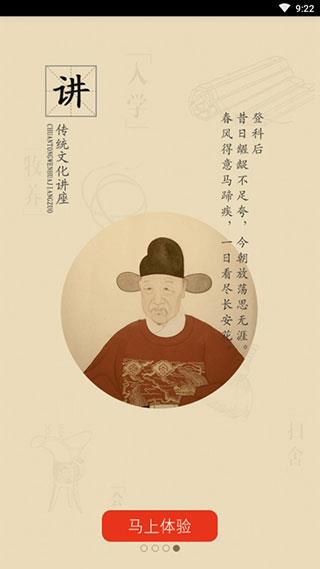 9:22
讲
传统文化讲座
CHUANTONGWENHUAJIANGZUO
登科后
昔日龌龊不足夸，今朝放荡思无涯。
春风得意马蹄疾，一日看尽长安花。
「入学」
牧养
扫舍
马上体验